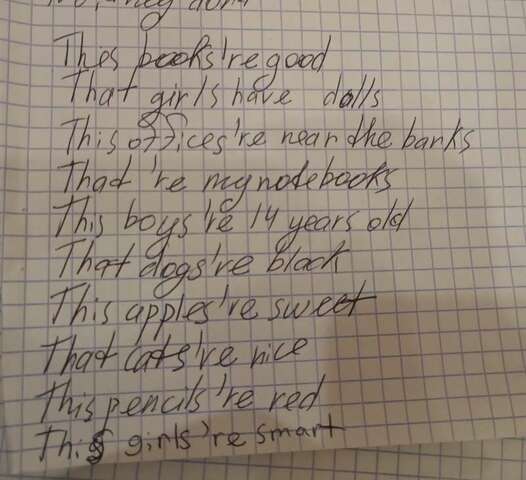 they don't
Thes books're good
That girls have dolls
This offices're near the banks
That 're my notebooks
This boys're 14 years old
That dogs're black
This apples're sweet
That cats're nice
This pencils're red
This girls're smart